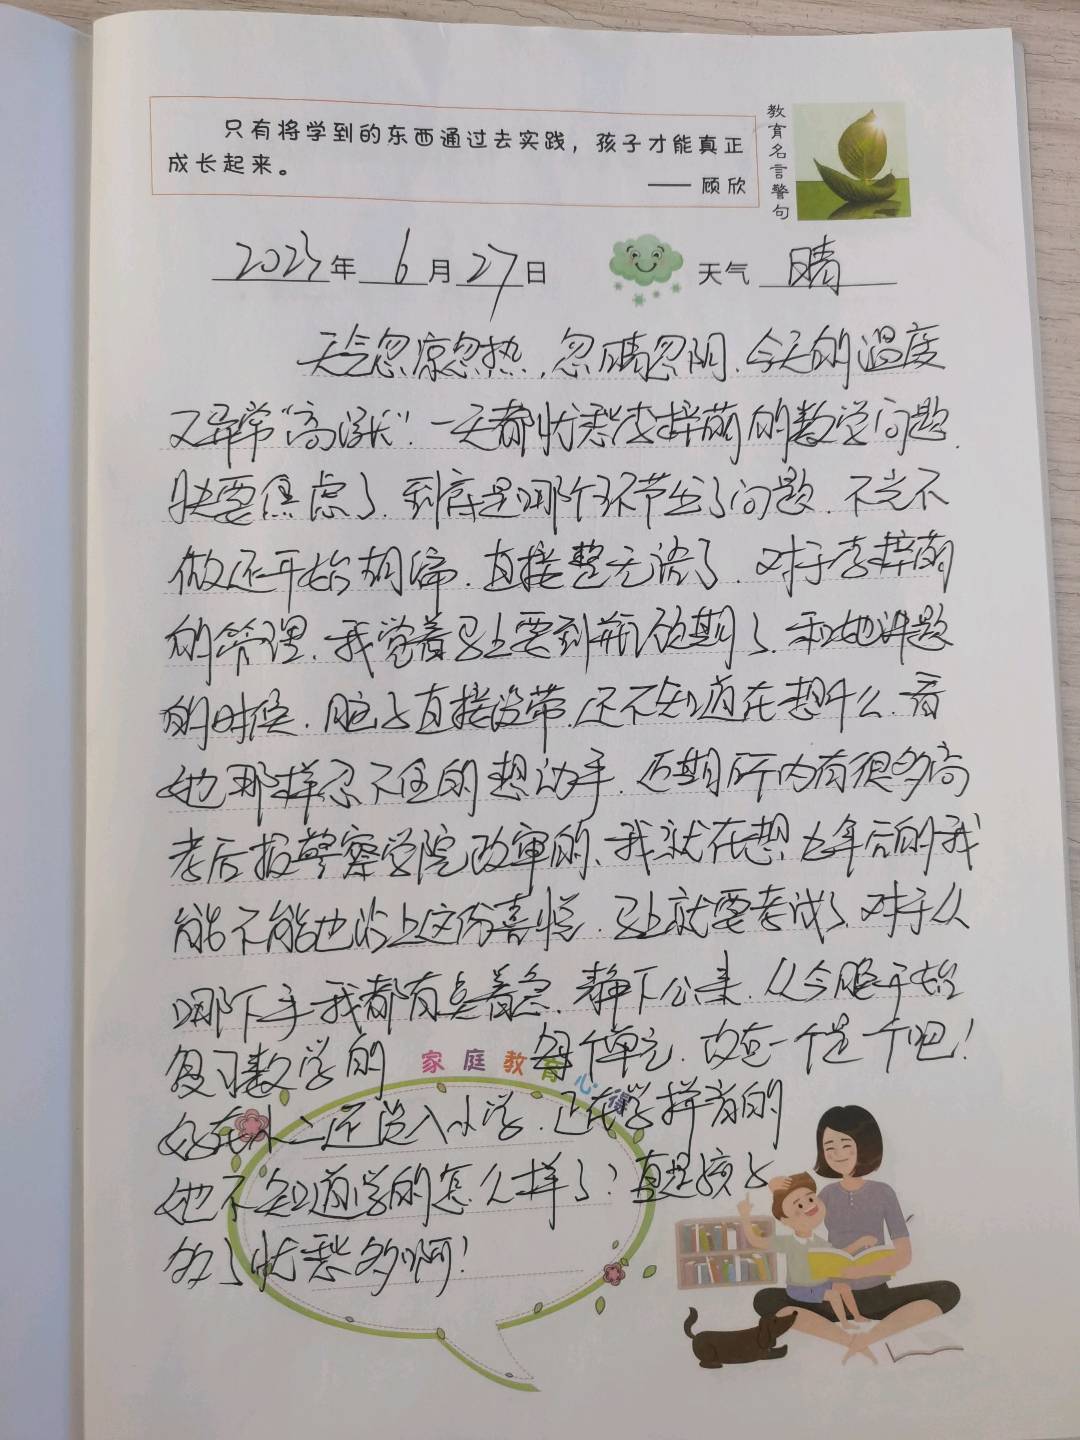 只有将学到的东西通过去实践，孩子才能真正
成长起来。
—— 顾欣
教育名言警句
2023年 6月27日 天气 晴
天气忽凉忽热，忽晴忽阴.今天的温度
又异常“高涨”.一天都忧愁李梓萌的数学问题.
快要焦虑了.到底是哪个环节出了问题.不光不
做还开始胡编.直接整无语了.对于李梓萌
的管理.我觉着马上要到叛逆期了.和她讲题
的时候.脑子直接没带.还不知道在想什么.看
她那样忍不住的想动手.近期所内有很多高
考后报警察学院政审的、我就在想 年后的我
能不能也沾上这份喜悦.马上就要考试了.对于从
哪下手我都有点着急.静下心来.从今晚开始
复习数学的 每个单元.攻克一个是一个吧！
家庭教育心得
好在小二还没入小学.正在学拼音的
她不知道学的怎么样了？真是孩子
多了忧愁多啊！